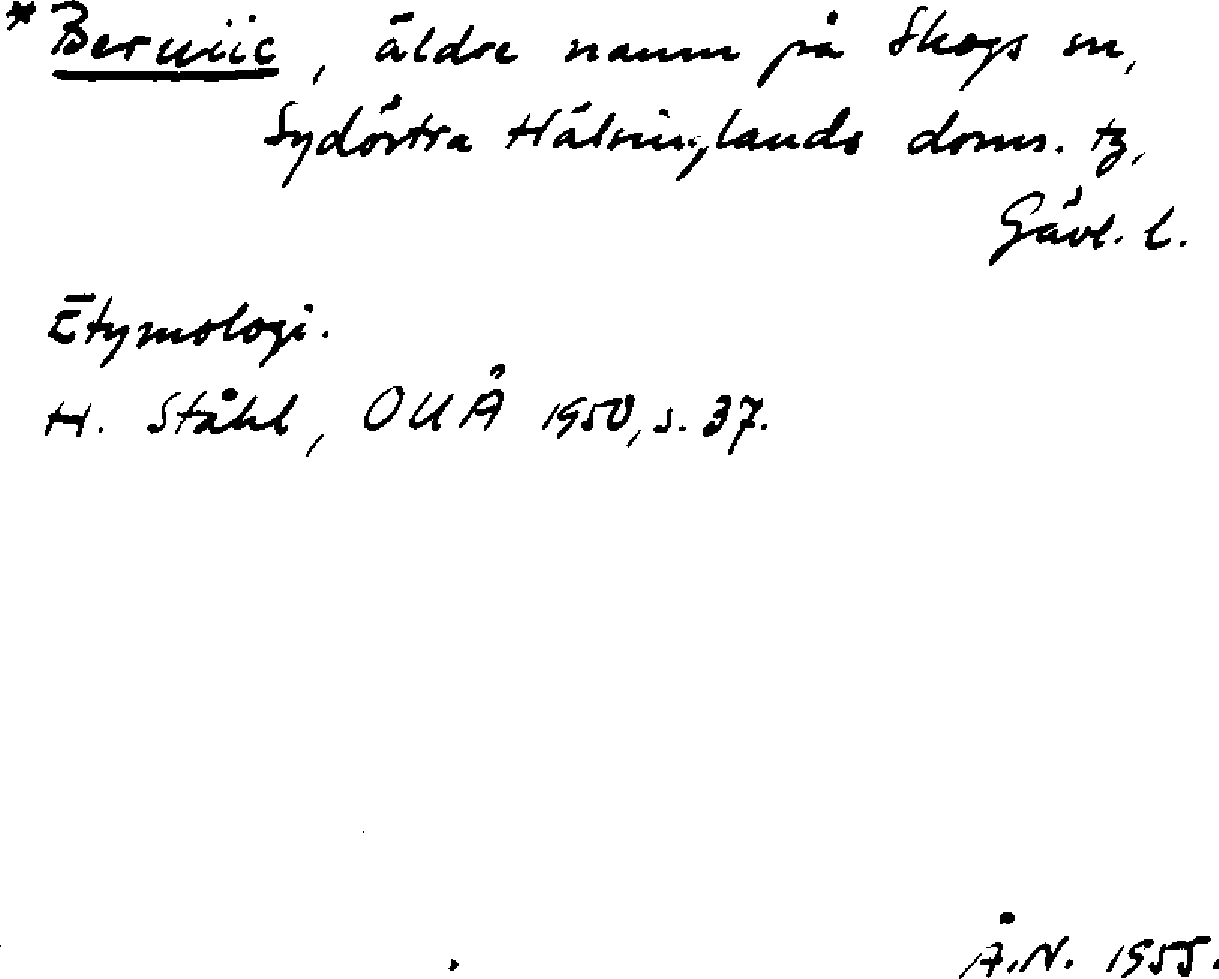 *Berwiic, äldre namn på Skogs sn,
Sydöstra Hälsinglands doms. tg,
Gävl. l.
Etymologi.
H. Ståhl, OUÅ 1950, s. 37.
Å.N. 1955.